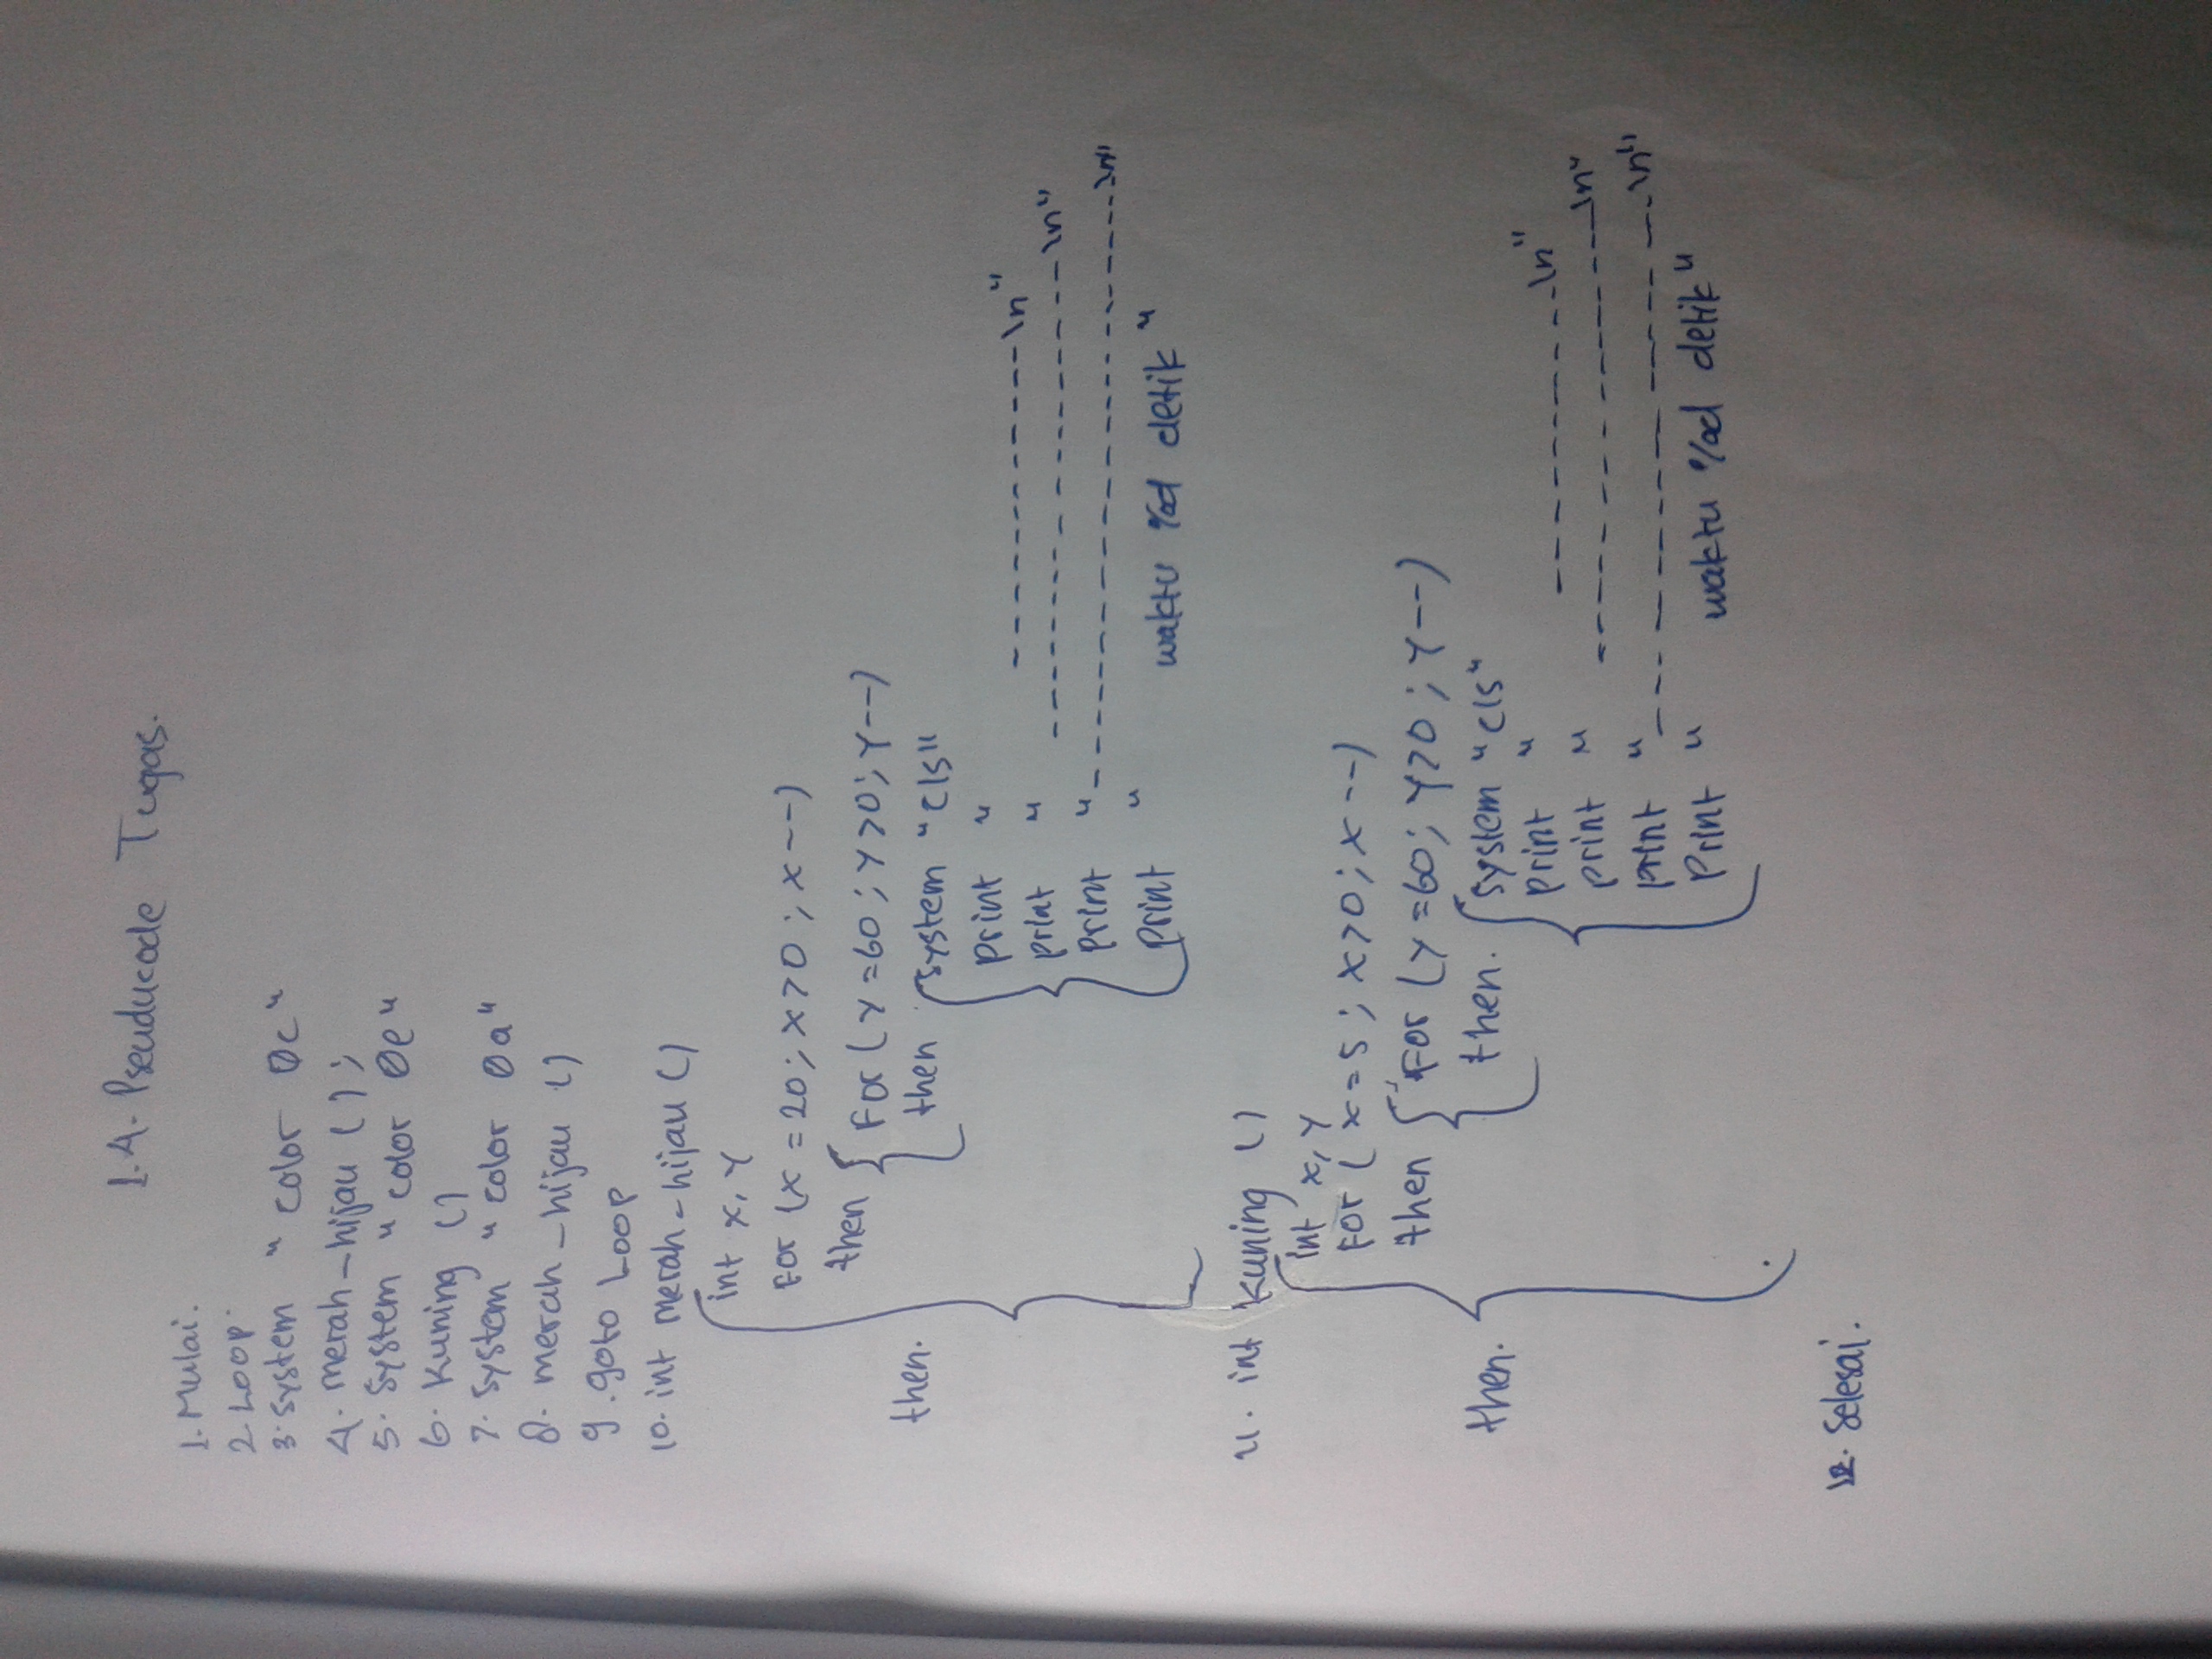 1.4. Pseuducode Tugas.
1. Mulai.
2. Loop.
3. System " color 0c "
4. merah-hijau ( ) ;
5. System " color 0e "
6. Kuning ( )
7. System " color 0a "
8. merah-hijau ( )
9. goto Loop
10. int merah-hijau ( )
int x, y
For (x = 20 ; x > 0 ; x --)
then { For ( y = 60 ; y > 0 ; y --)
then. then { system "cls"
print " ------------\n"
print " ------------------\n"
print "------------------------\n"
print " waktu %d detik "
11. int kuning ( )
int x, y
For ( x = 5 ; x > 0 ; x --)
then { For (y = 60 ; y > 0 ; y --)
then. then. { system "cls"
print " ------------\n"
print " ------------------\n"
print "------------------------\n"
Print " waktu %d detik "
12. Selesai.